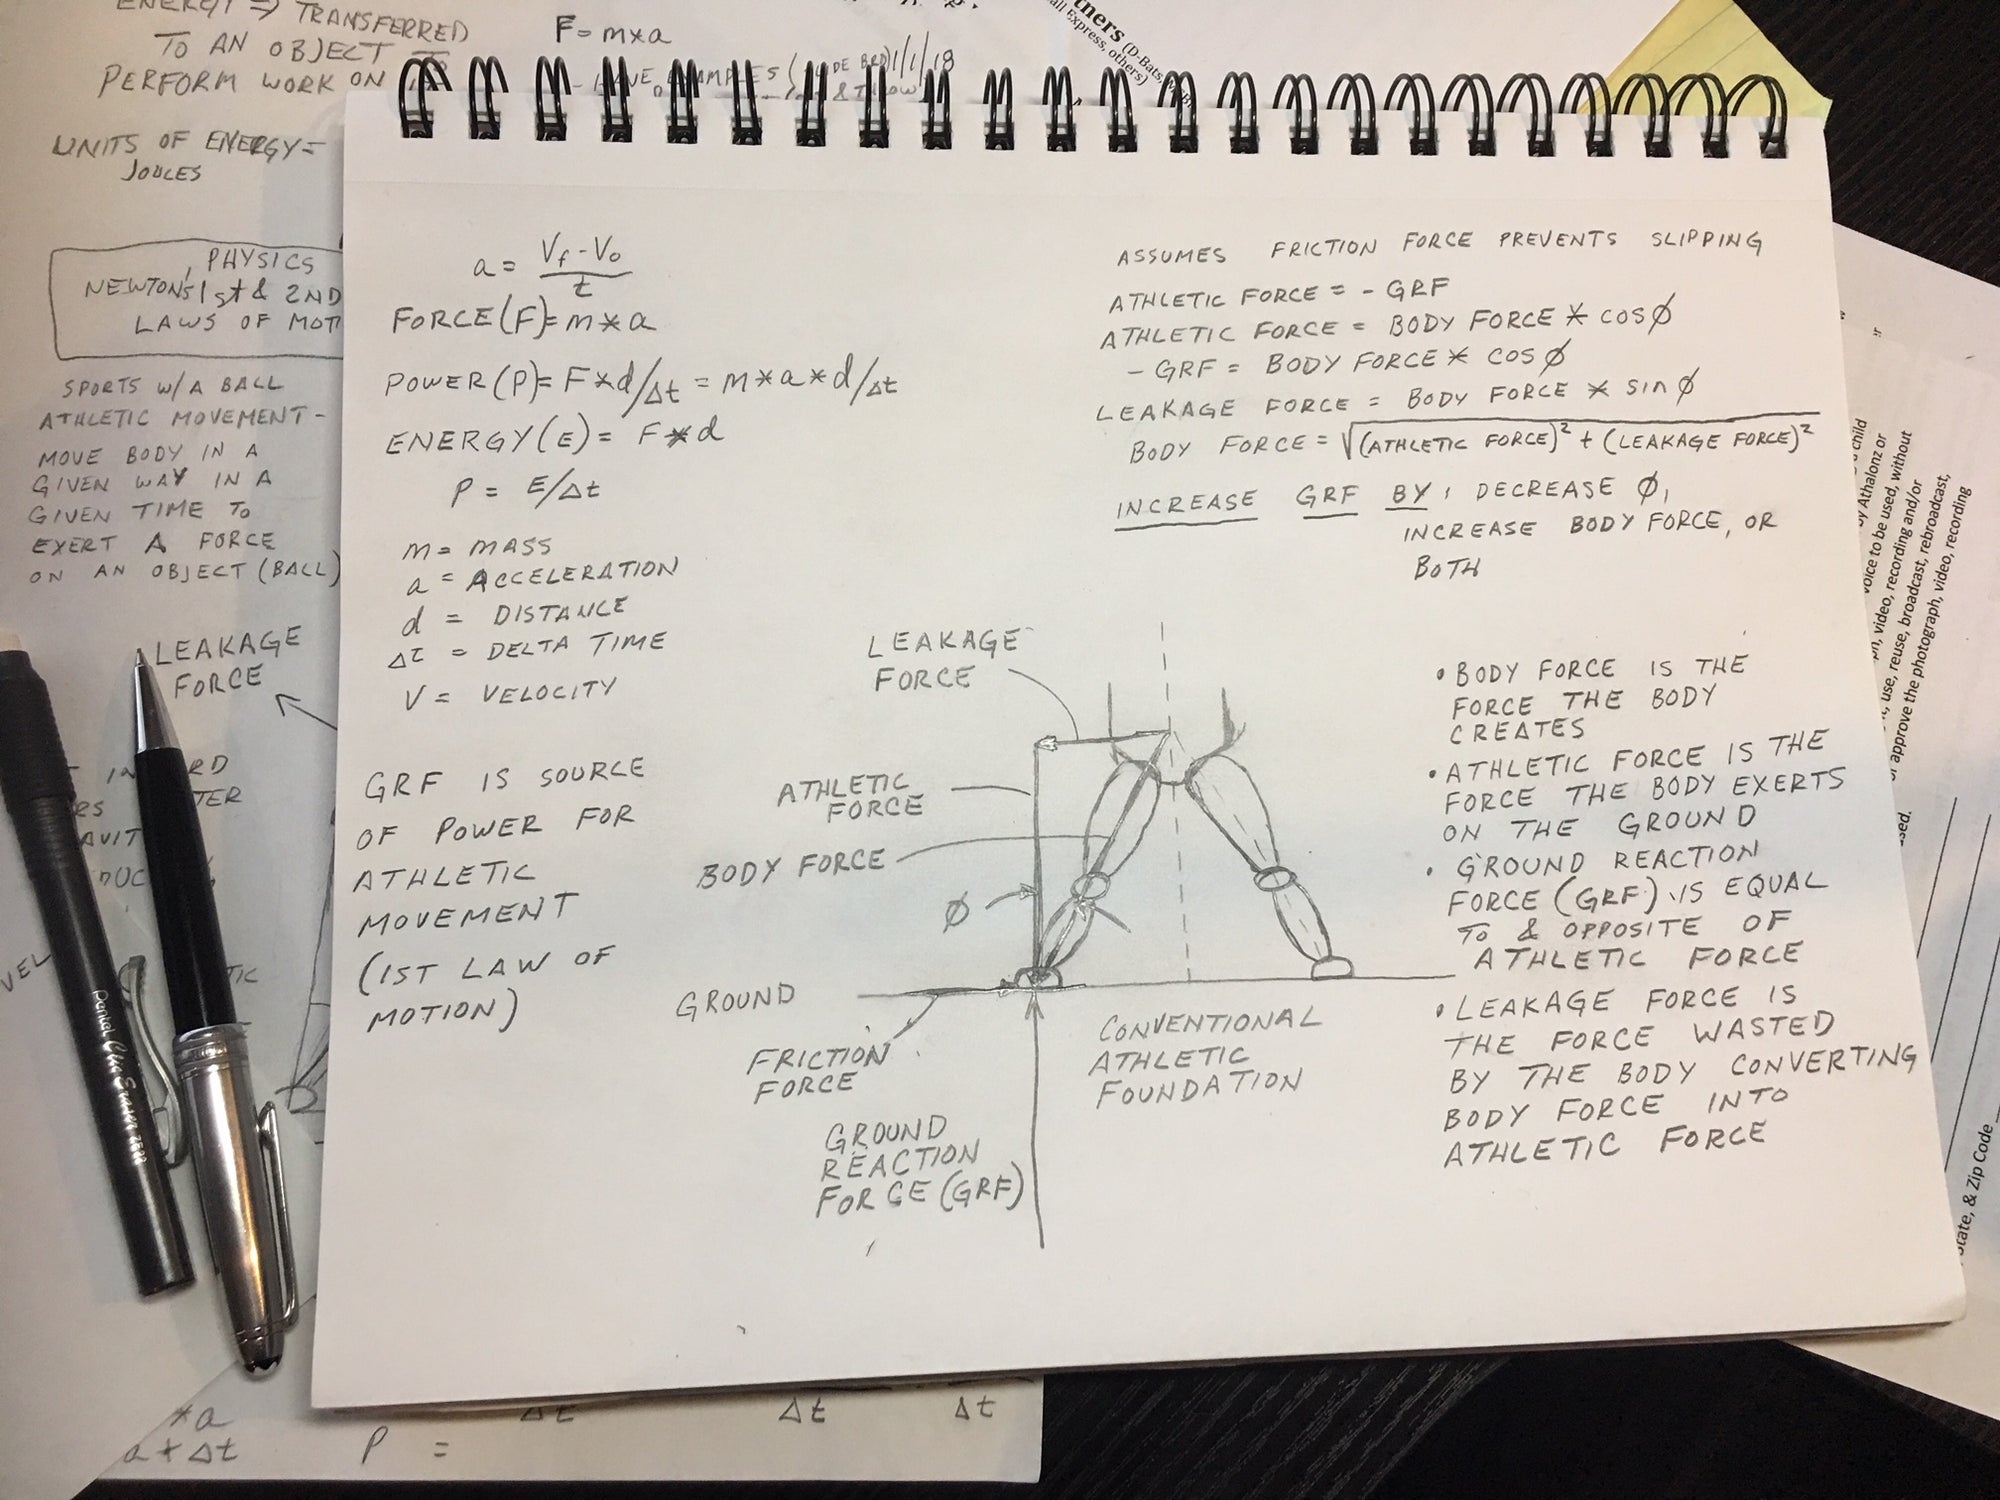 ENERGY => TRANSFERRED
TO AN OBJECT TO
PERFORM WORK ON
UNITS OF ENERGY =
JOULES
PHYSICS
NEWTONS 1st & 2ND
LAWS OF MOTI
SPORTS W/A BALL
ATHLETIC MOVEMENT -
MOVE BODY IN A
GIVEN WAY IN A
GIVEN TIME TO
EXERT A FORCE
ON AN OBJECT (BALL)
LEAKAGE
FORCE
F = m*a
1/1/18
tners (D-Bats,
all Express, others)
a = Vf - Vo
t
FORCE (F) = m*a
POWER (P) = F*d/Δt = m*a*d/Δt
ENERGY (E) = F*d
P = E/Δt
m = MASS
a = ACCELERATION
d = DISTANCE
Δt = DELTA TIME
V = VELOCITY
GRF IS SOURCE
OF POWER FOR
ATHLETIC
MOVEMENT
(1ST LAW OF
MOTION)
ASSUMES FRICTION FORCE PREVENTS SLIPPING
ATHLETIC FORCE = - GRF
ATHLETIC FORCE = BODY FORCE * COSØ
- GRF = BODY FORCE * COSØ
LEAKAGE FORCE = BODY FORCE * sinØ
BODY FORCE = √(ATHLETIC FORCE)² + (LEAKAGE FORCE)²
INCREASE GRF BY: DECREASE Ø,
INCREASE BODY FORCE, OR
BOTH
LEAKAGE
FORCE
ATHLETIC
FORCE
BODY FORCE
Ø
GROUND
FRICTION
FORCE
GROUND
REACTION
FORCE (GRF)
CONVENTIONAL
ATHLETIC
FOUNDATION
• BODY FORCE IS THE
FORCE THE BODY
CREATES
• ATHLETIC FORCE IS THE
FORCE THE BODY EXERTS
ON THE GROUND
• GROUND REACTION
FORCE (GRF) IS EQUAL
TO & OPPOSITE OF
ATHLETIC FORCE
• LEAKAGE FORCE IS
THE FORCE WASTED
BY THE BODY CONVERTING
BODY FORCE INTO
ATHLETIC FORCE
child
by Athalonz or
voice to be used, without
video, recording and/or
use, reuse, broadcast, rebroadcast,
approve the photograph, video, recording
State, & Zip Code
Pentel
*a
a * Δt
P =
Δt
Δt
Δt